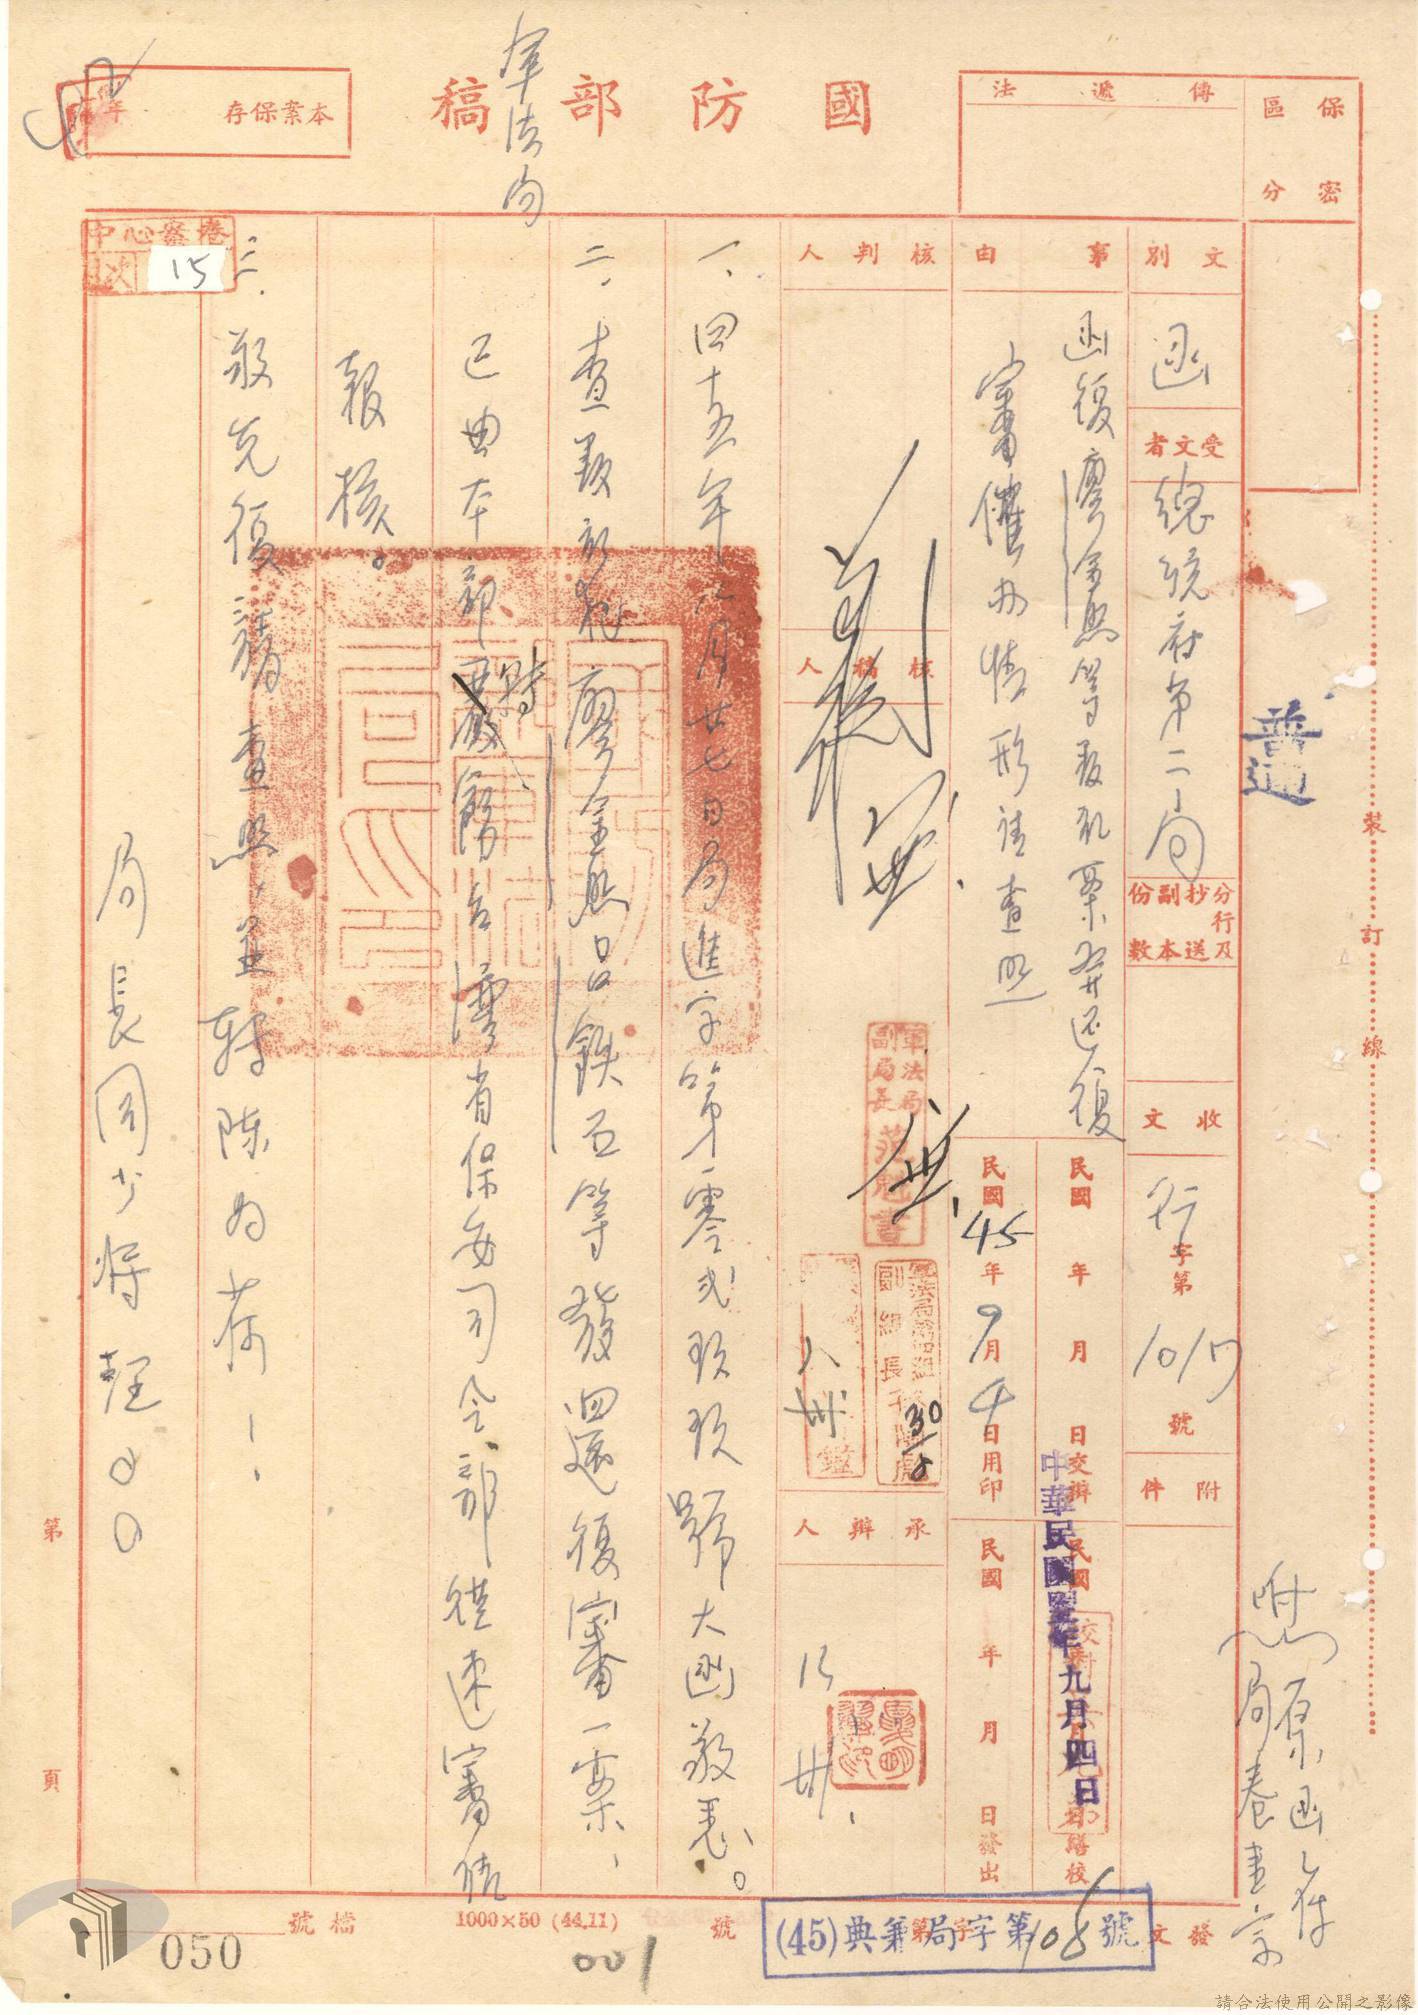 國防部稿
軍法局
保密區分
傳遞法
本案保存
年
文別
函
受文者
總統府第二局
分行及抄送副本份數
收文
行字第10117號
附件
事由
函復廖金照等叛亂案發還復
審催办情形請查照
民國 年 月 日交辦
民國45年9月4日用印
民國 年 月 日繕校
民國 年 月 日發出
中華民國四十五年九月四日
核判人
核稿人
承辦人
軍法局副局長范魁書
30/8
一、四十五年八月廿七日局進字第零弍玖玖號大函敬悉。
二、查叛亂犯廖金照呂鉄石等發回還復審一案、
已由本部飭台灣省保安司令部從速審結
報核。
三、敬先復請查照、並轉陳為荷！
局長周少將 ○○
普通
附原函乙件
局卷壹宗
裝訂線
中心卷
次
15
第 頁
檔號
1000×50 (44.11)
號
(45)典 局字第108號
發文 字第
050
001
請合法使用公開之影像